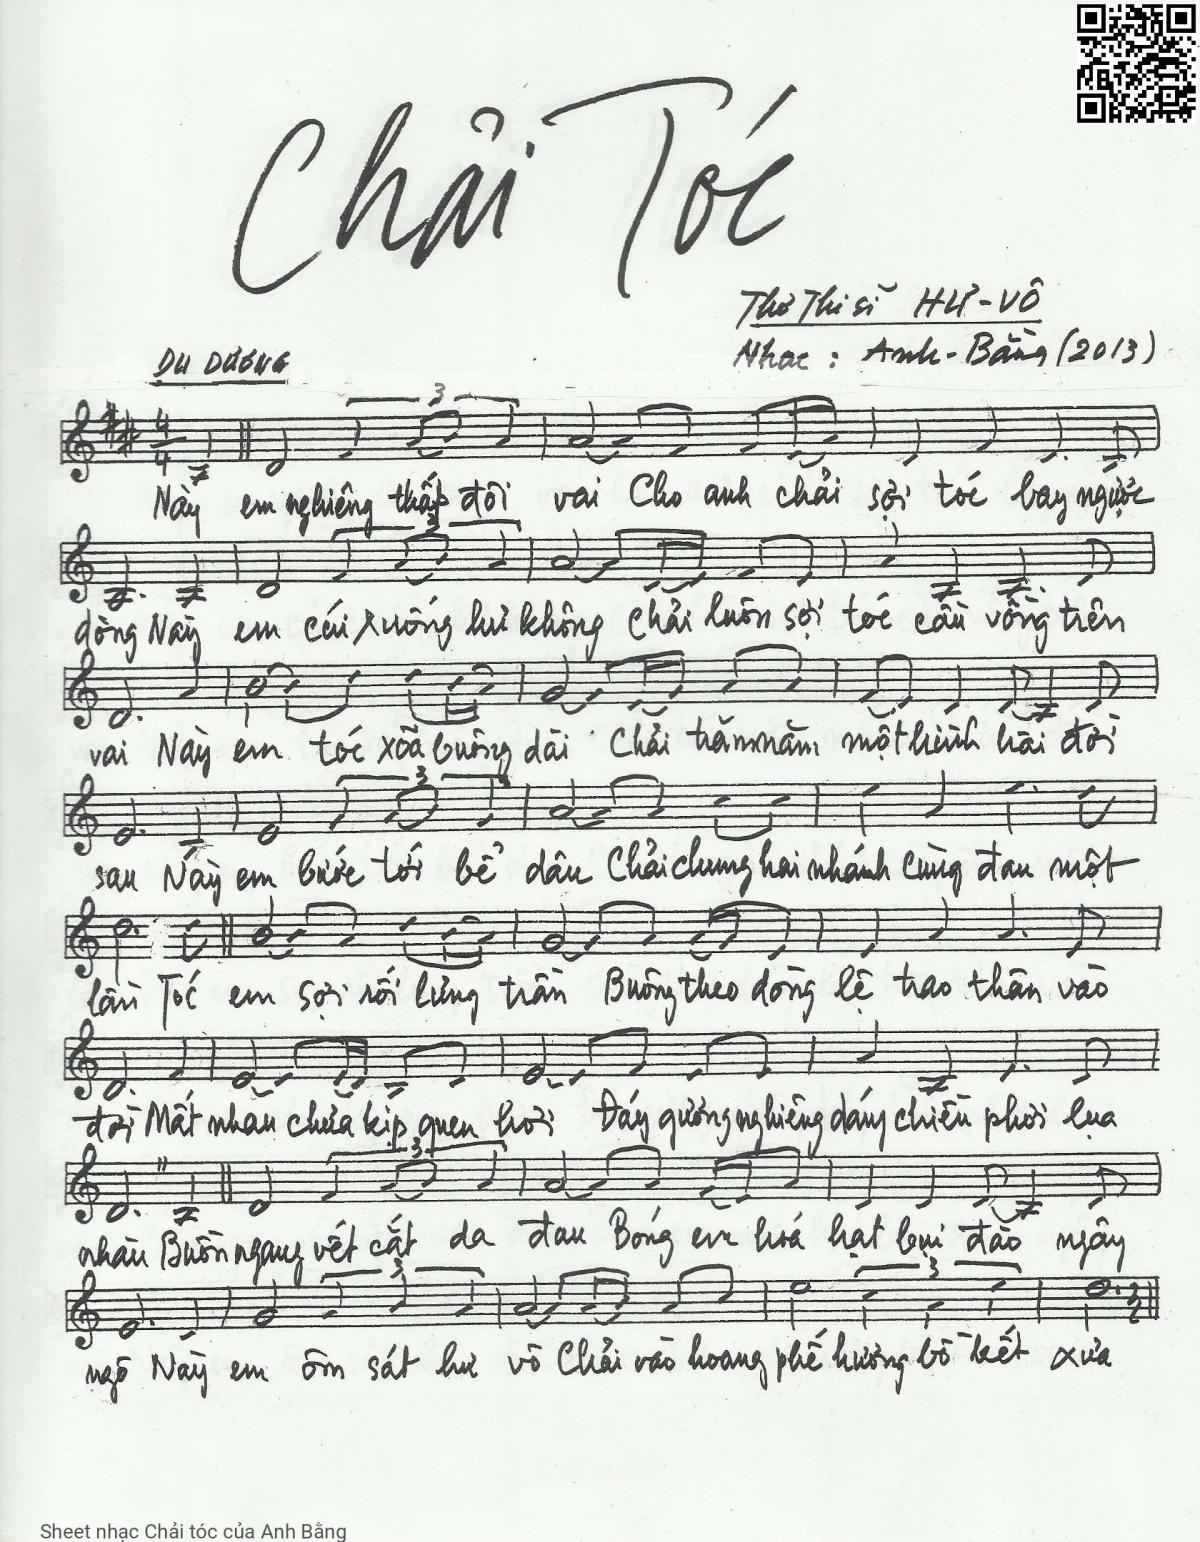 Chải Tóc
Thơ Thi sĩ HƯ-VÔ
Nhạc : Anh-Bằng (2013)
DU DƯƠNG
3
4
4
Này em nghiêng thấp đôi vai Cho anh chải sợi tóc bay ngược
3
dòng Này em cúi xuống hư không Chải luôn sợi tóc cầu vồng trên
vai Này em tóc xõa buông dài Chải trăm năm một hình hài đời
3
sau Này em bước tới bể dâu Chải chung hai nhánh cùng đau một
lần Tóc em sợi rối lưng trần Buông theo dòng lệ trao thân vào
đời Mất nhau chưa kịp quen hơi Đáy gương nghiêng dáng chiều phơi lụa
3
nhàu Buồn ngang vết cắt da đau Bóng em hoá hạt bụi đào ngây
3 3
ngô Này em ôm sát hư vô Chải vào hoang phế hương bồ kết xưa
Sheet nhạc Chải tóc của Anh Bằng